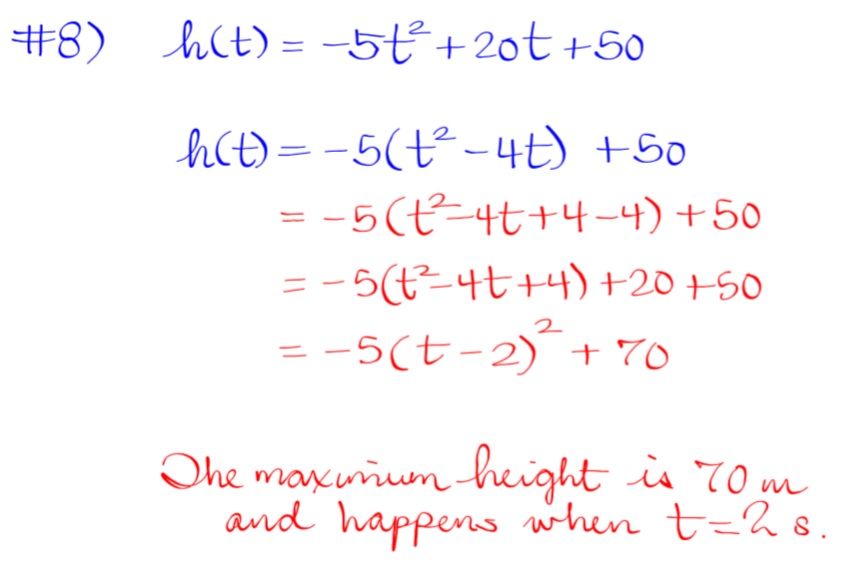 #8) h(t) = -5t² + 20t + 50
h(t) = -5(t² - 4t) + 50
= -5(t² - 4t + 4 - 4) + 50
= -5(t² - 4t + 4) + 20 + 50
= -5(t - 2)² + 70
The maximum height is 70 m
and happens when t = 2 s.